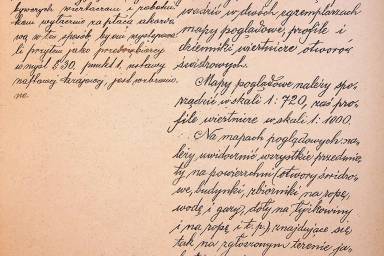 wą w ten sposób, by oni występowali
przytem jako przedsiębiorcy
w myśl § 30, punkt 1, ustawy
naftowej krajowej, jest wzbronione.
wadzić w dwóch egzemplarzach
mapy poglądowe, profile i
dzienniki wiertnicze otworów
świdrowych.
Mapy poglądowe należy sporządzić
w skali 1:720, zaś profile
wiertnicze w skali 1:1000.
Na mapach poglądowych należy
uwidocznić wszystkie przedmioty
na powierzchni (otwory świdrowe,
budynki, zbiorniki na ropę,
wodę i gazy, doły na łyżkowiny
i na ropę i t. p.) znajdujące się
tak na zgłoszonym terenie ja-